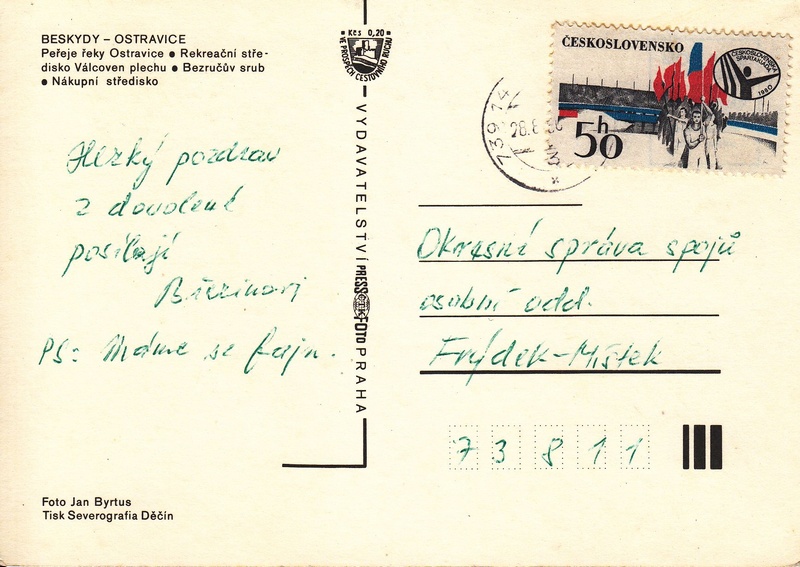 BESKYDY – OSTRAVICE
Peřeje řeky Ostravice ● Rekreační stře-
disko Válcoven plechu ● Bezručův srub
● Nákupní středisko
Hezký pozdrav
z dovolené
posílají
Březinovi
PS: Máme se fajn.
Foto Jan Byrtus
Tisk Severografia Děčín
Kčs 0,20
VE PROSPĚCH CESTOVNÍHO RUCHU
VYDAVATELSTVÍ PRESSFOTO PRAHA
ČESKOSLOVENSKO
ČESKOSLOVENSKÁ SPARTAKIÁDA 1980
50h
739 24
Okresní správa spojů
osobní odd.
Frýdek-Místek
73811